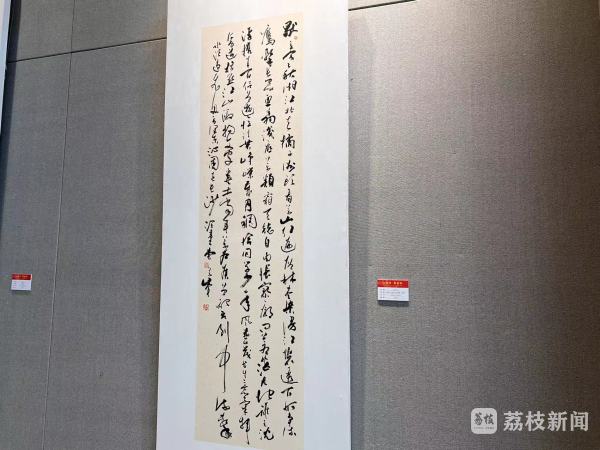 獨立寒秋湘江北去橘子洲頭看萬山紅遍層林盡染漫江碧透百舸爭流
鷹擊長空魚翔淺底萬類霜天競自由悵寥廓問蒼茫大地誰主沉
浮攜來百侶曾遊憶往昔崢嶸歲月稠恰同學少年風華正茂書生意氣揮
斥方遒指點江山激揚文字糞土當年萬戶侯曾記否到中流擊
水浪遏飛舟 沁園春長沙
荔枝
荔枝新闻